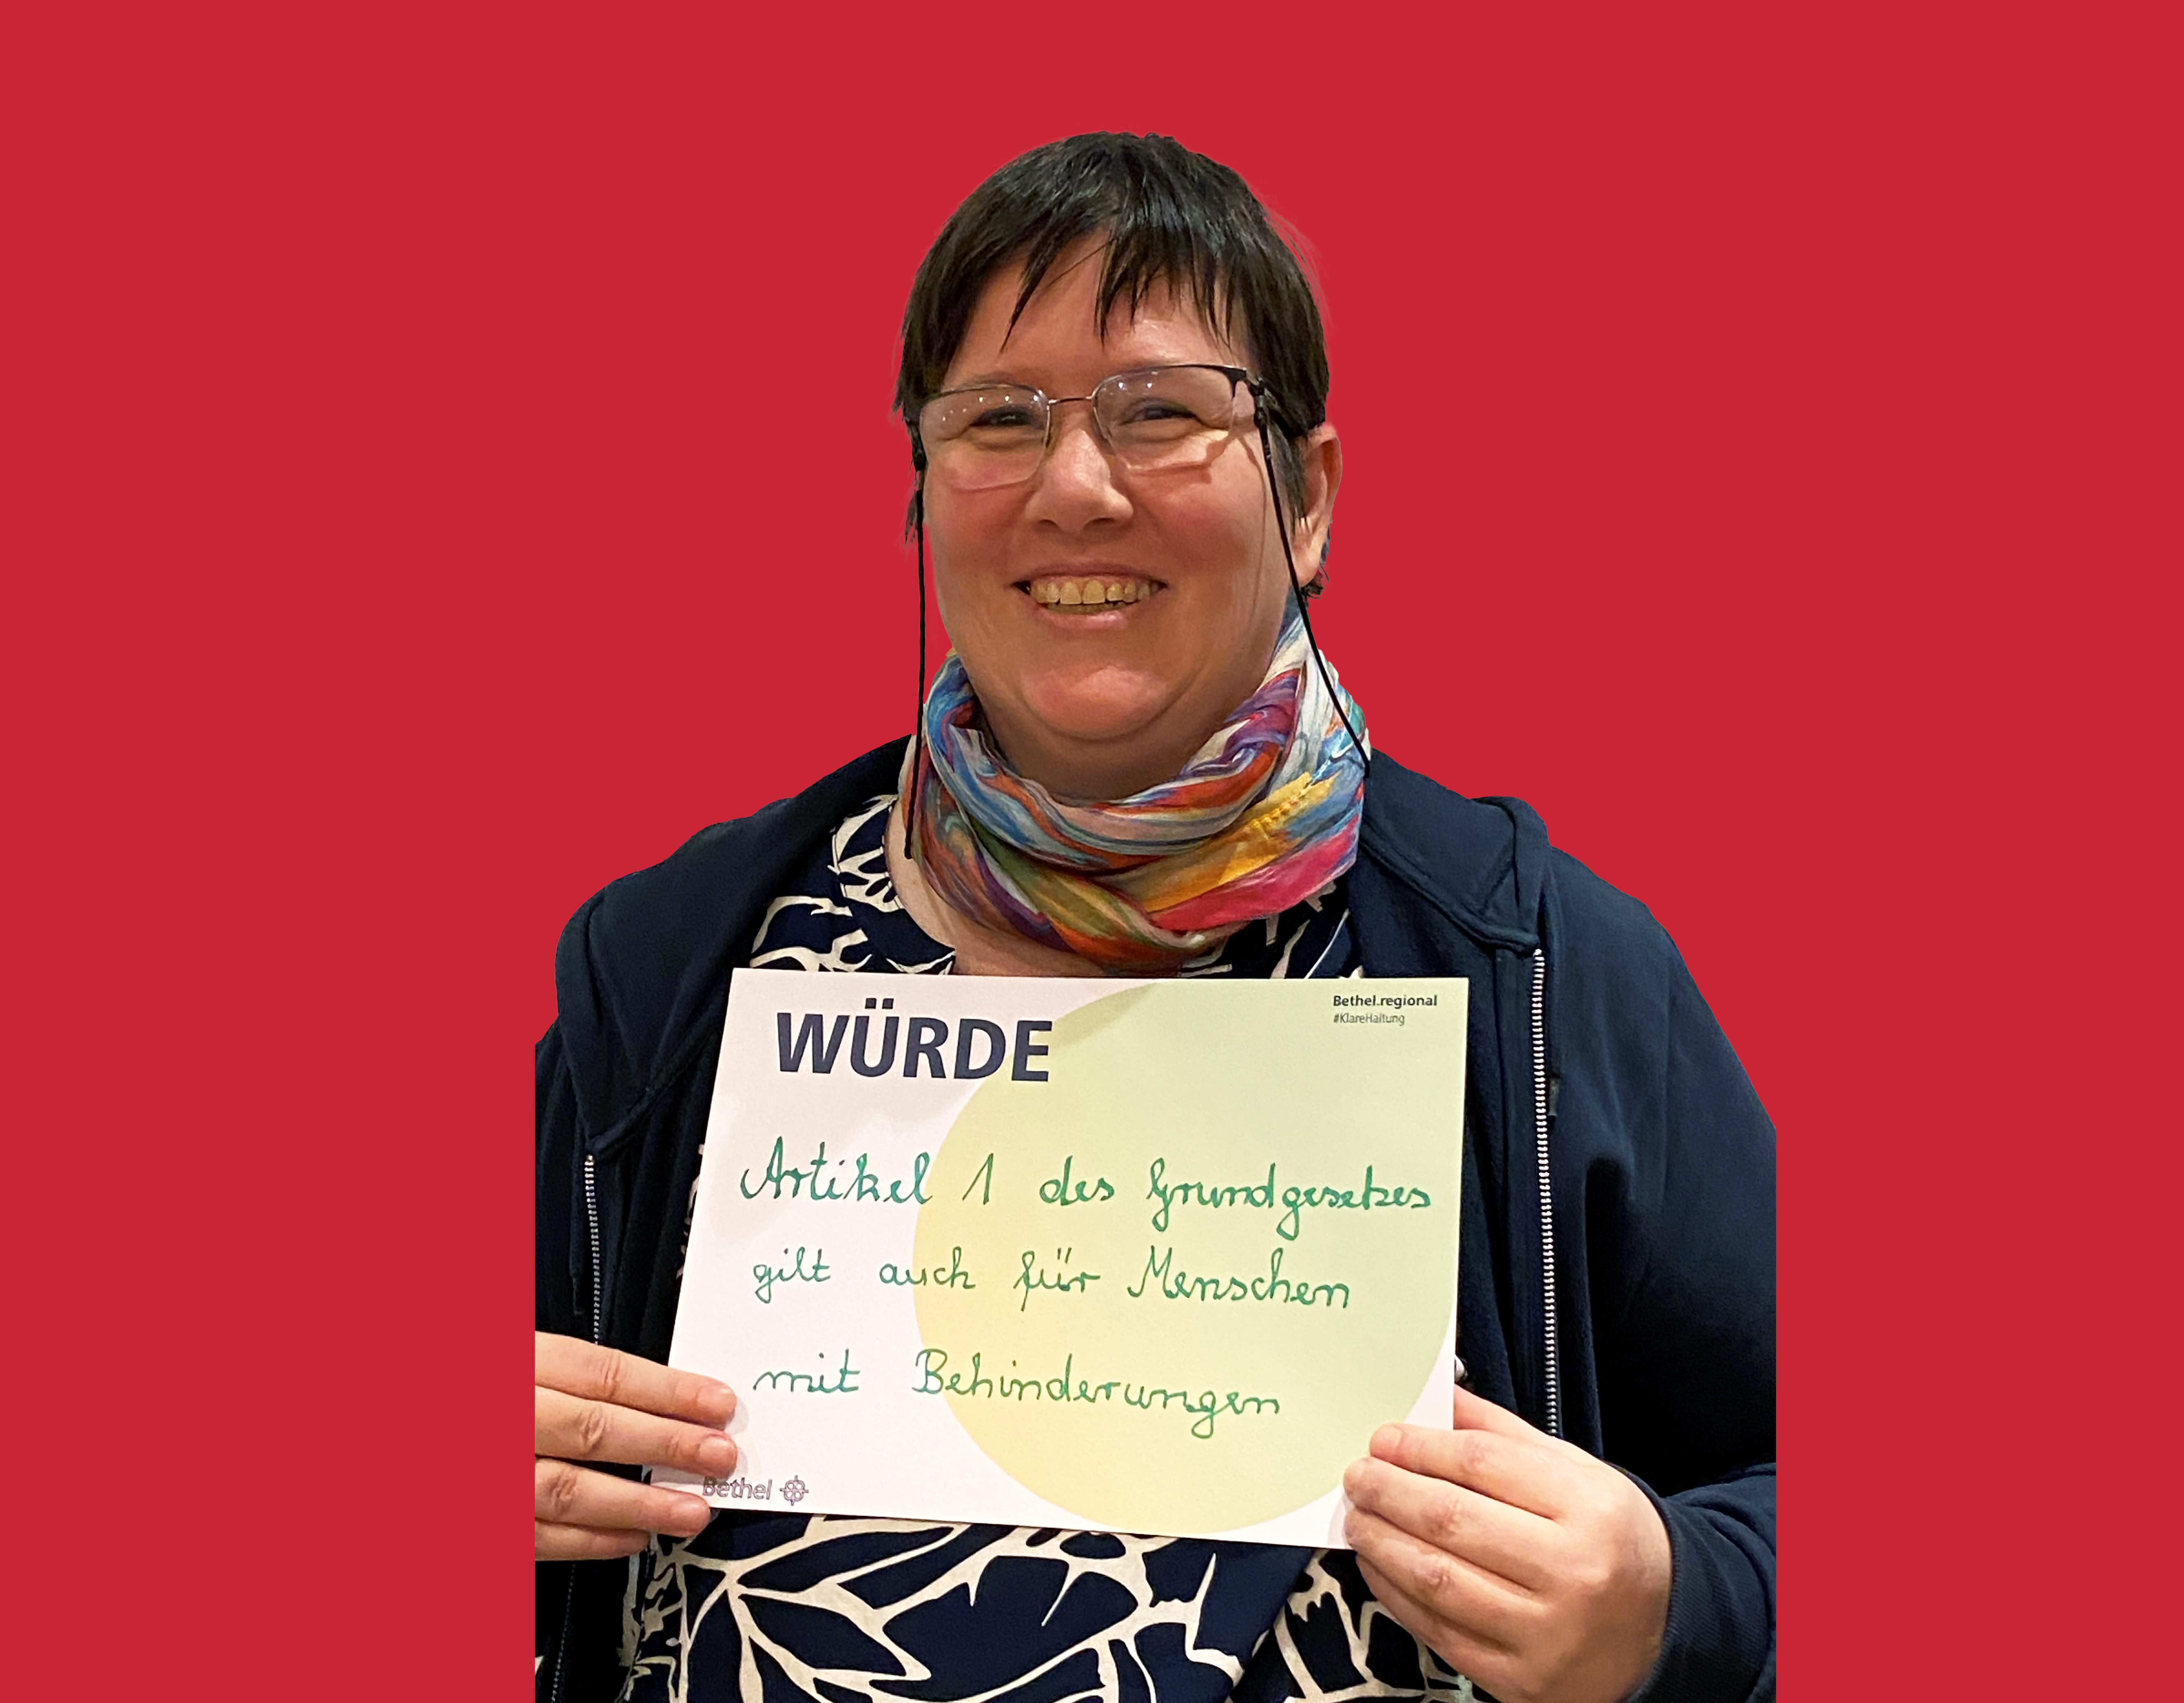 WÜRDE
Bethel.regional
#KlareHaltung
Artikel 1 des Grundgesetzes
gilt auch für Menschen
mit Behinderungen
Bethel